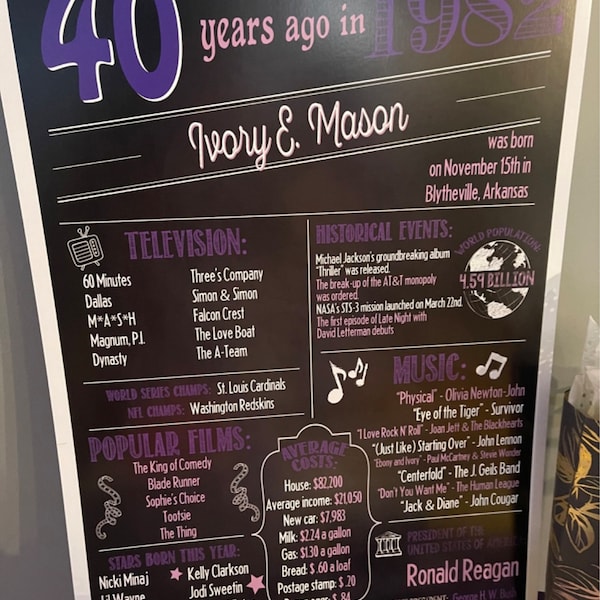 40 years ago in 1982
Ivory E. Mason
was born
on November 15th in
Blytheville, Arkansas
TELEVISION:
60 Minutes
Dallas
M*A*S*H
Magnum, P.I.
Dynasty
Three's Company
Simon & Simon
Falcon Crest
The Love Boat
The A-Team
WORLD SERIES CHAMPS: St. Louis Cardinals
NFL CHAMPS: Washington Redskins
HISTORICAL EVENTS:
Michael Jackson's groundbreaking album
"Thriller" was released.
The break-up of the AT&T monopoly
was ordered.
NASA's STS-3 mission launched on March 22nd.
The first episode of Late Night with
David Letterman debuts
WORLD POPULATION:
4.59 BILLION
MUSIC:
"Physical" - Olivia Newton-John
"Eye of the Tiger" - Survivor
"I Love Rock N' Roll" - Joan Jett & The Blackhearts
"(Just Like) Starting Over" - John Lennon
"Ebony and Ivory" - Paul McCartney & Stevie Wonder
"Centerfold" - The J. Geils Band
"Don't You Want Me" - The Human League
"Jack & Diane" - John Cougar
POPULAR FILMS:
The King of Comedy
Blade Runner
Sophie's Choice
Tootsie
The Thing
AVERAGE
COSTS:
House: $82,200
Average income: $21,050
New car: $7,983
Milk: $2.24 a gallon
Gas: $1.30 a gallon
Bread: $ .60 a loaf
Postage stamp: $ .20
$ .84
STARS BORN THIS YEAR:
Nicki Minaj
Lil Wayne
Kelly Clarkson
Jodi Sweetin
PRESIDENT OF THE
UNITED STATES OF AMERICA:
Ronald Reagan
PRESIDENT: George H. W. Bush